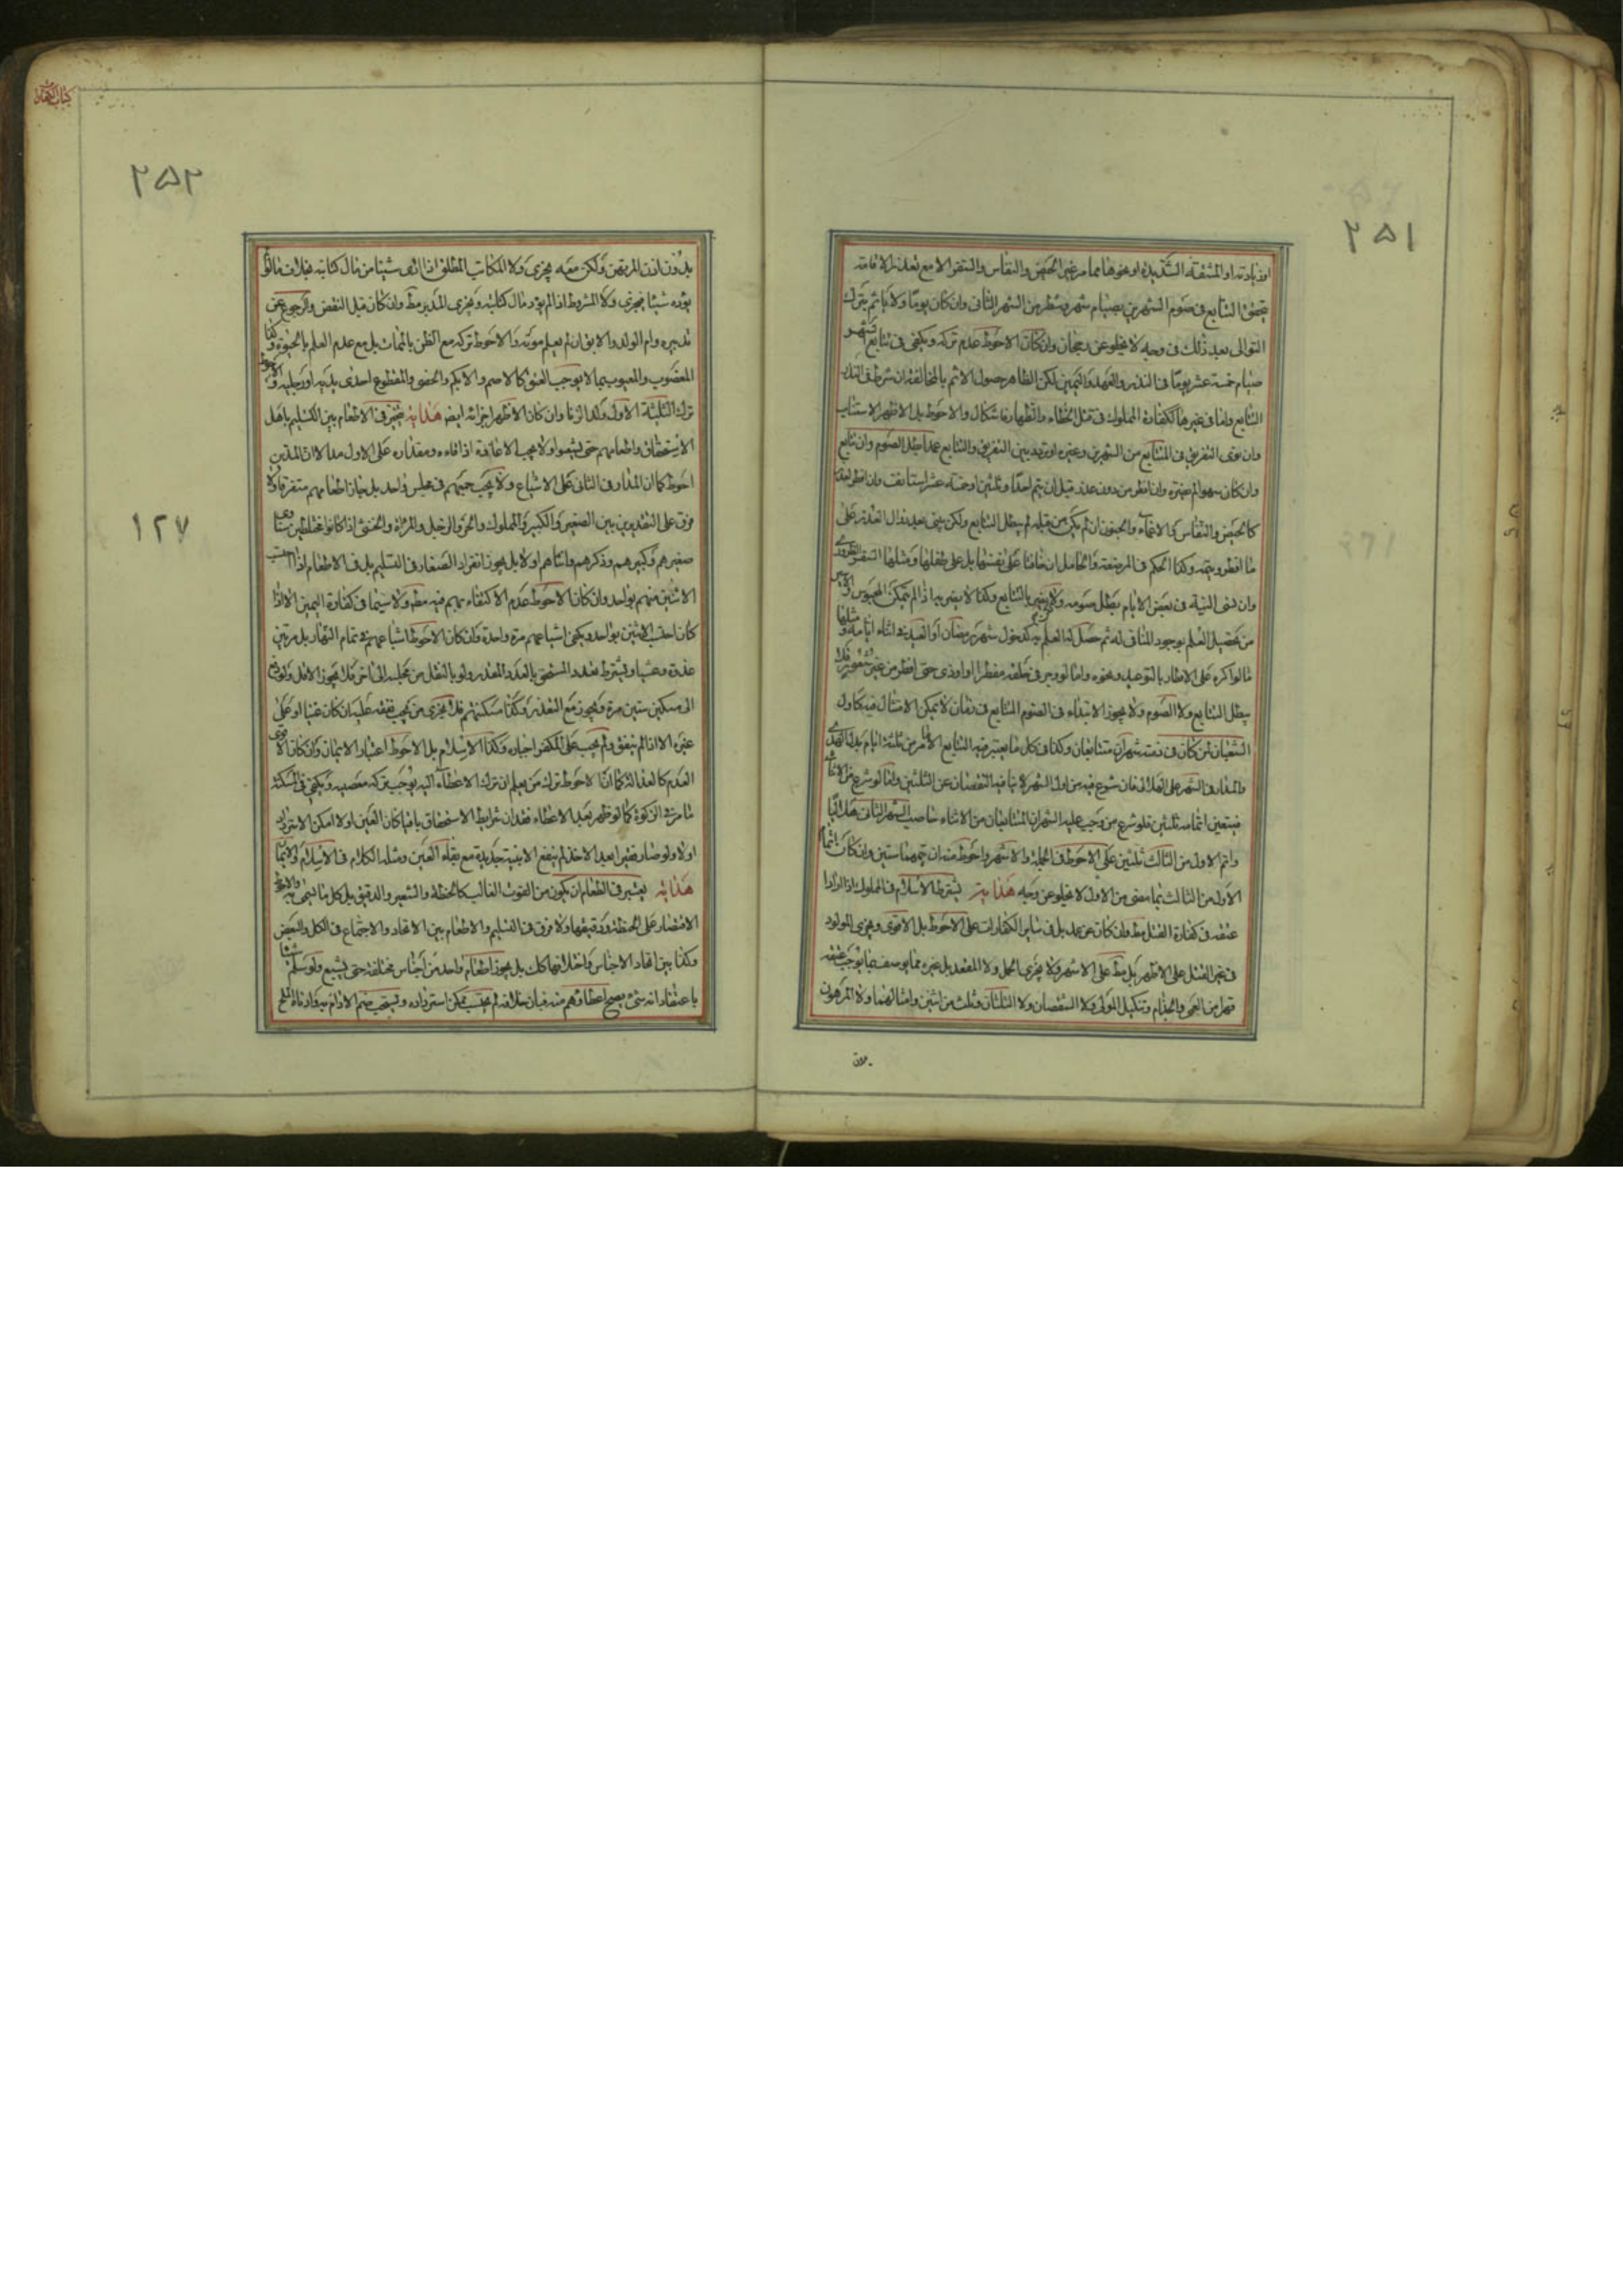 ٢٥١
او زيادته او المشقة الشديدة او نحوها مما مر غير الحيض والنفاس والسفر الا مع تعذر الاقامة
يتحقق التتابع فى صوم الشهرين بصيام شهر وشطر من الشهر الثانى وان كان يومًا ولا ياثم بترك
التوالى بعد ذلك فى وجه لا يخلو عن رجحان وان كان الاحوط عدم تركه ويكفى فى تتابع شهر
صيام خمسة عشر يومًا فى النذر والعهد واليمين لكن الظاهر حصول الاثم بالمخالفة ان شرط فى النذر
التتابع واما فى غيرها ككفارة المملوك فى قتل الخطاء والظهار فاشكال والاحوط بل الاظهر الاستيناف
وان نوى التفريق فى المتتابع من الشهرين وغيره او تردد بين التفريق والتتابع عمدا بطل الصوم وان تتابع
وان كان سهوا لم يضره وان افطر من دون عذر قبل ان يتم احدًا وثلثين او خمسة عشر استانف وان افطر لعذر
كالحيض والنفاس والاغماء والجنون ان لم يكن من قبله لم يبطل التتابع ولكن يبنى بعد زوال العذر على
ما افطر ويتمه وكذا الحكم فى المرضعة والحامل ان خافتا على نفسهما بل على طفلهما ومثلها السفر الضرورى
وان نسى النية فى بعض الايام بطل صومه ولا يضر بالتتابع وكذا لا يضر به اذا لم يتمكن المحبوس
من تحصيل العلم بوجود المنافى له ثم حصل له العلم به كدخول شهر رمضان او العيد فى اثناء ايامه ومثلها
ما لو اكره على الافطار بالتوعيد ونحوه واما لو وجر فى حلقه مفطرا او اوذى حتى افطر من غير شعور فلا
يبطل التتابع ولا الصوم ولا يجوز الابتداء فى الصوم المتتابع فى زمان لا يمكن الامتثال فيه كاول
الشعبان لمن كان فى ذمته شهران متتابعان وكذا فى كل ما يعتبر فيه التتابع الا ما مر من ثلثة ايام بدل الهدى
والمدار فى الشهر على الهلالى فان شرع فيه من اول الشهر لا ينافيه النقصان عن الثلثين واما لو شرع من الاثناء
فيتعين اتمامه ثلثين فلو شرع من وجب عليه الشهران المتتابعان من الاثناء صاحب الشهر الثانى هلاليًا
واتم الاول من الثالث ثلثين على الاحوط فى الجملة والاشهر واحوط منه ان يتمهما ستين وان كان اتمام
الاول من الثالث بما مضى من الاول لا يخلو عن وجه هداية يشترط الاسلام فى المملوك اذا ارادا
عتقه فى كفارة القتل مط وان كان عن عمد بل فى ساير الكفارات على الاحوط بل الاقوى ويجزى المولود
فى غير القتل على الاظهر بل مط على الاشهر ولا يجزى الحمل ولا المقعد بل غيره مما يوصف بما يوجب عتقه
قهرا من العمى والجذام وتنكيل المولى ولا الشقصان ولا الثلثان وثلث من اثنين وامثالهما ولا المرهون
٢٥٢
١٢٧
بدون اذن المرتهن ولكن معه يجزى ولا المكاتب المطلق اذا ادى شيئا من مال كتابته بخلاف ما لو
يؤده شيئا فيجزى ولا المشروط اذا لم يؤد مال كتابته ويجزى المدبر مط وان كان قبل النقض والرجوع عن
تدبيره وام الولد والابق ان لم يعلم موته والاحوط تركه مع الظن بالممات بل مع عدم العلم بالحيوة وكذا
المغصوب والمعيوب بما لا يوجب العتق كالاصم والابكم والخصى والمقطوع احدى يديه او رجليه والاحوط
ترك الثلثة الاول وولد الزنا وان كان الاظهر اجزائه ايضا هداية يتخير فى الاطعام بين التسليم باهل
الاستحقاق واطعامهم حتى يشبعوا ومقداره على الاول مد الا ان المدين
احوط كما ان المدار فى الثانى على الاشباع ولا يجب جمعهم فى مجلس واحد بل جاز اطعامهم متفرقا ولا
فرق على التقديرين بين الصغير والكبير والمملوك والحر والرجل والمرئة والخنثى اذا كانوا مختلطين
صغيرهم وكبيرهم وذكرهم وانثاهم اولا بل يجوز انفراد الصغار فى التسليم بل فى الاطعام اذا احتسب
الاثنين منهم بواحد وان كان الاحوط عدم الاكتفاء بهم فيه مطم ولا سيما فى كفارة اليمين الا اذا
كان احتسب الاثنين بواحد ويكفى اشباعهم مرة واحدة وان كان الاحوط اشباعهم فى تمام النهار بل مرتين
غدوة وعشيا ويشترط تعدد المستحق بالعدد المقدر ولو بالنقل من مجلس الى اخر فلا يجوز الاقل ولو دفع
الى مسكين ستين مرة ويجوز مع التعذر وكذا مسكنتهم فلا يجزى من تجب نفقته عليه ان كان غنيا او على
غيره الا اذا لم ينفق ولم يجب على المكفر اجباره وكذا الاسلام بل الاحوط اعتبار الايمان وان كان الاقوى
العدم كالعدالة كما ان الاحوط ترك من يعلم ان ترك الاعطاء اليه يوجب تركه معصيه ويكفى فى المسكنة
ما مر فى الزكوة كما لو ظهر بعد الاعطاء فقدان شرايط الاستحقاق باقيا كان العين اولا امكن الاسترداد
اولا ولو صار فقيرا بعد الاخذ لم ينفع الا بنية جديدة مع بقاء العين ومثله الكلام فى الاسلام والايمان
هداية يعتبر فى الطعام ان يكون من القوت الغالب كالحنطة والشعير والدقيق بل كل ما يسمى به والاحوط
الاقتصار على الحنطة ودقيقها ولا فرق فى التسليم والاطعام بين الاتحاد والاجتماع فى الكل والبعض
وكذا بين اتحاد الاجناس واختلافها كك بل يجوز اطعام واحد من اجناس مختلفة حتى يشبع ولو سلم شيئا
باعتقاد انه شئ يصح اعطاؤهم منه فبان خلافه لم يحتسب يمكن استرداده ويستحب ضم الادام به وادناه الملح
بدون